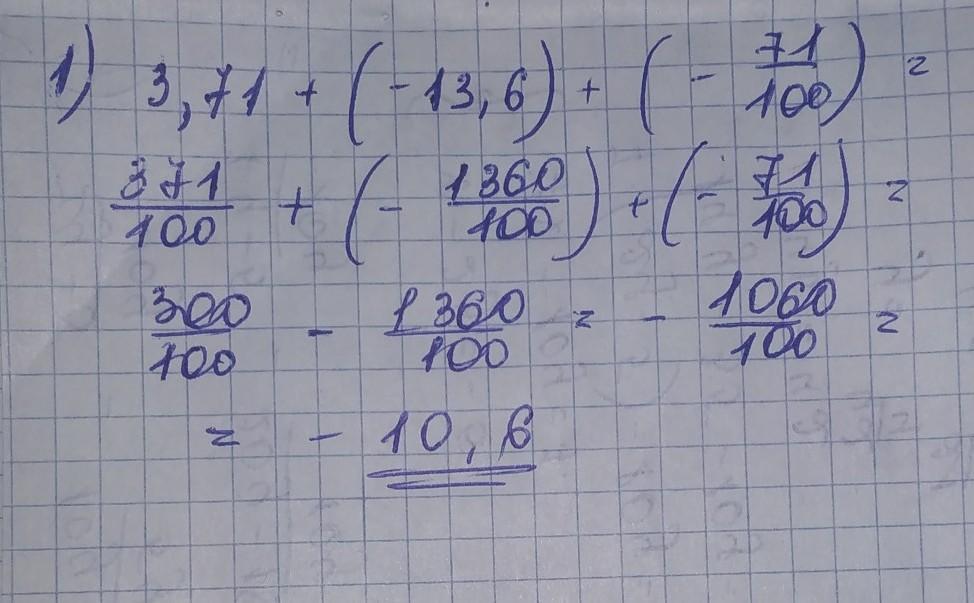 1) 3,71 + (-13,6) + (- 71/100) =
371/100 + (- 1360/100) + (- 71/100) =
300/100 - 1360/100 = - 1060/100 =
= - 10,6